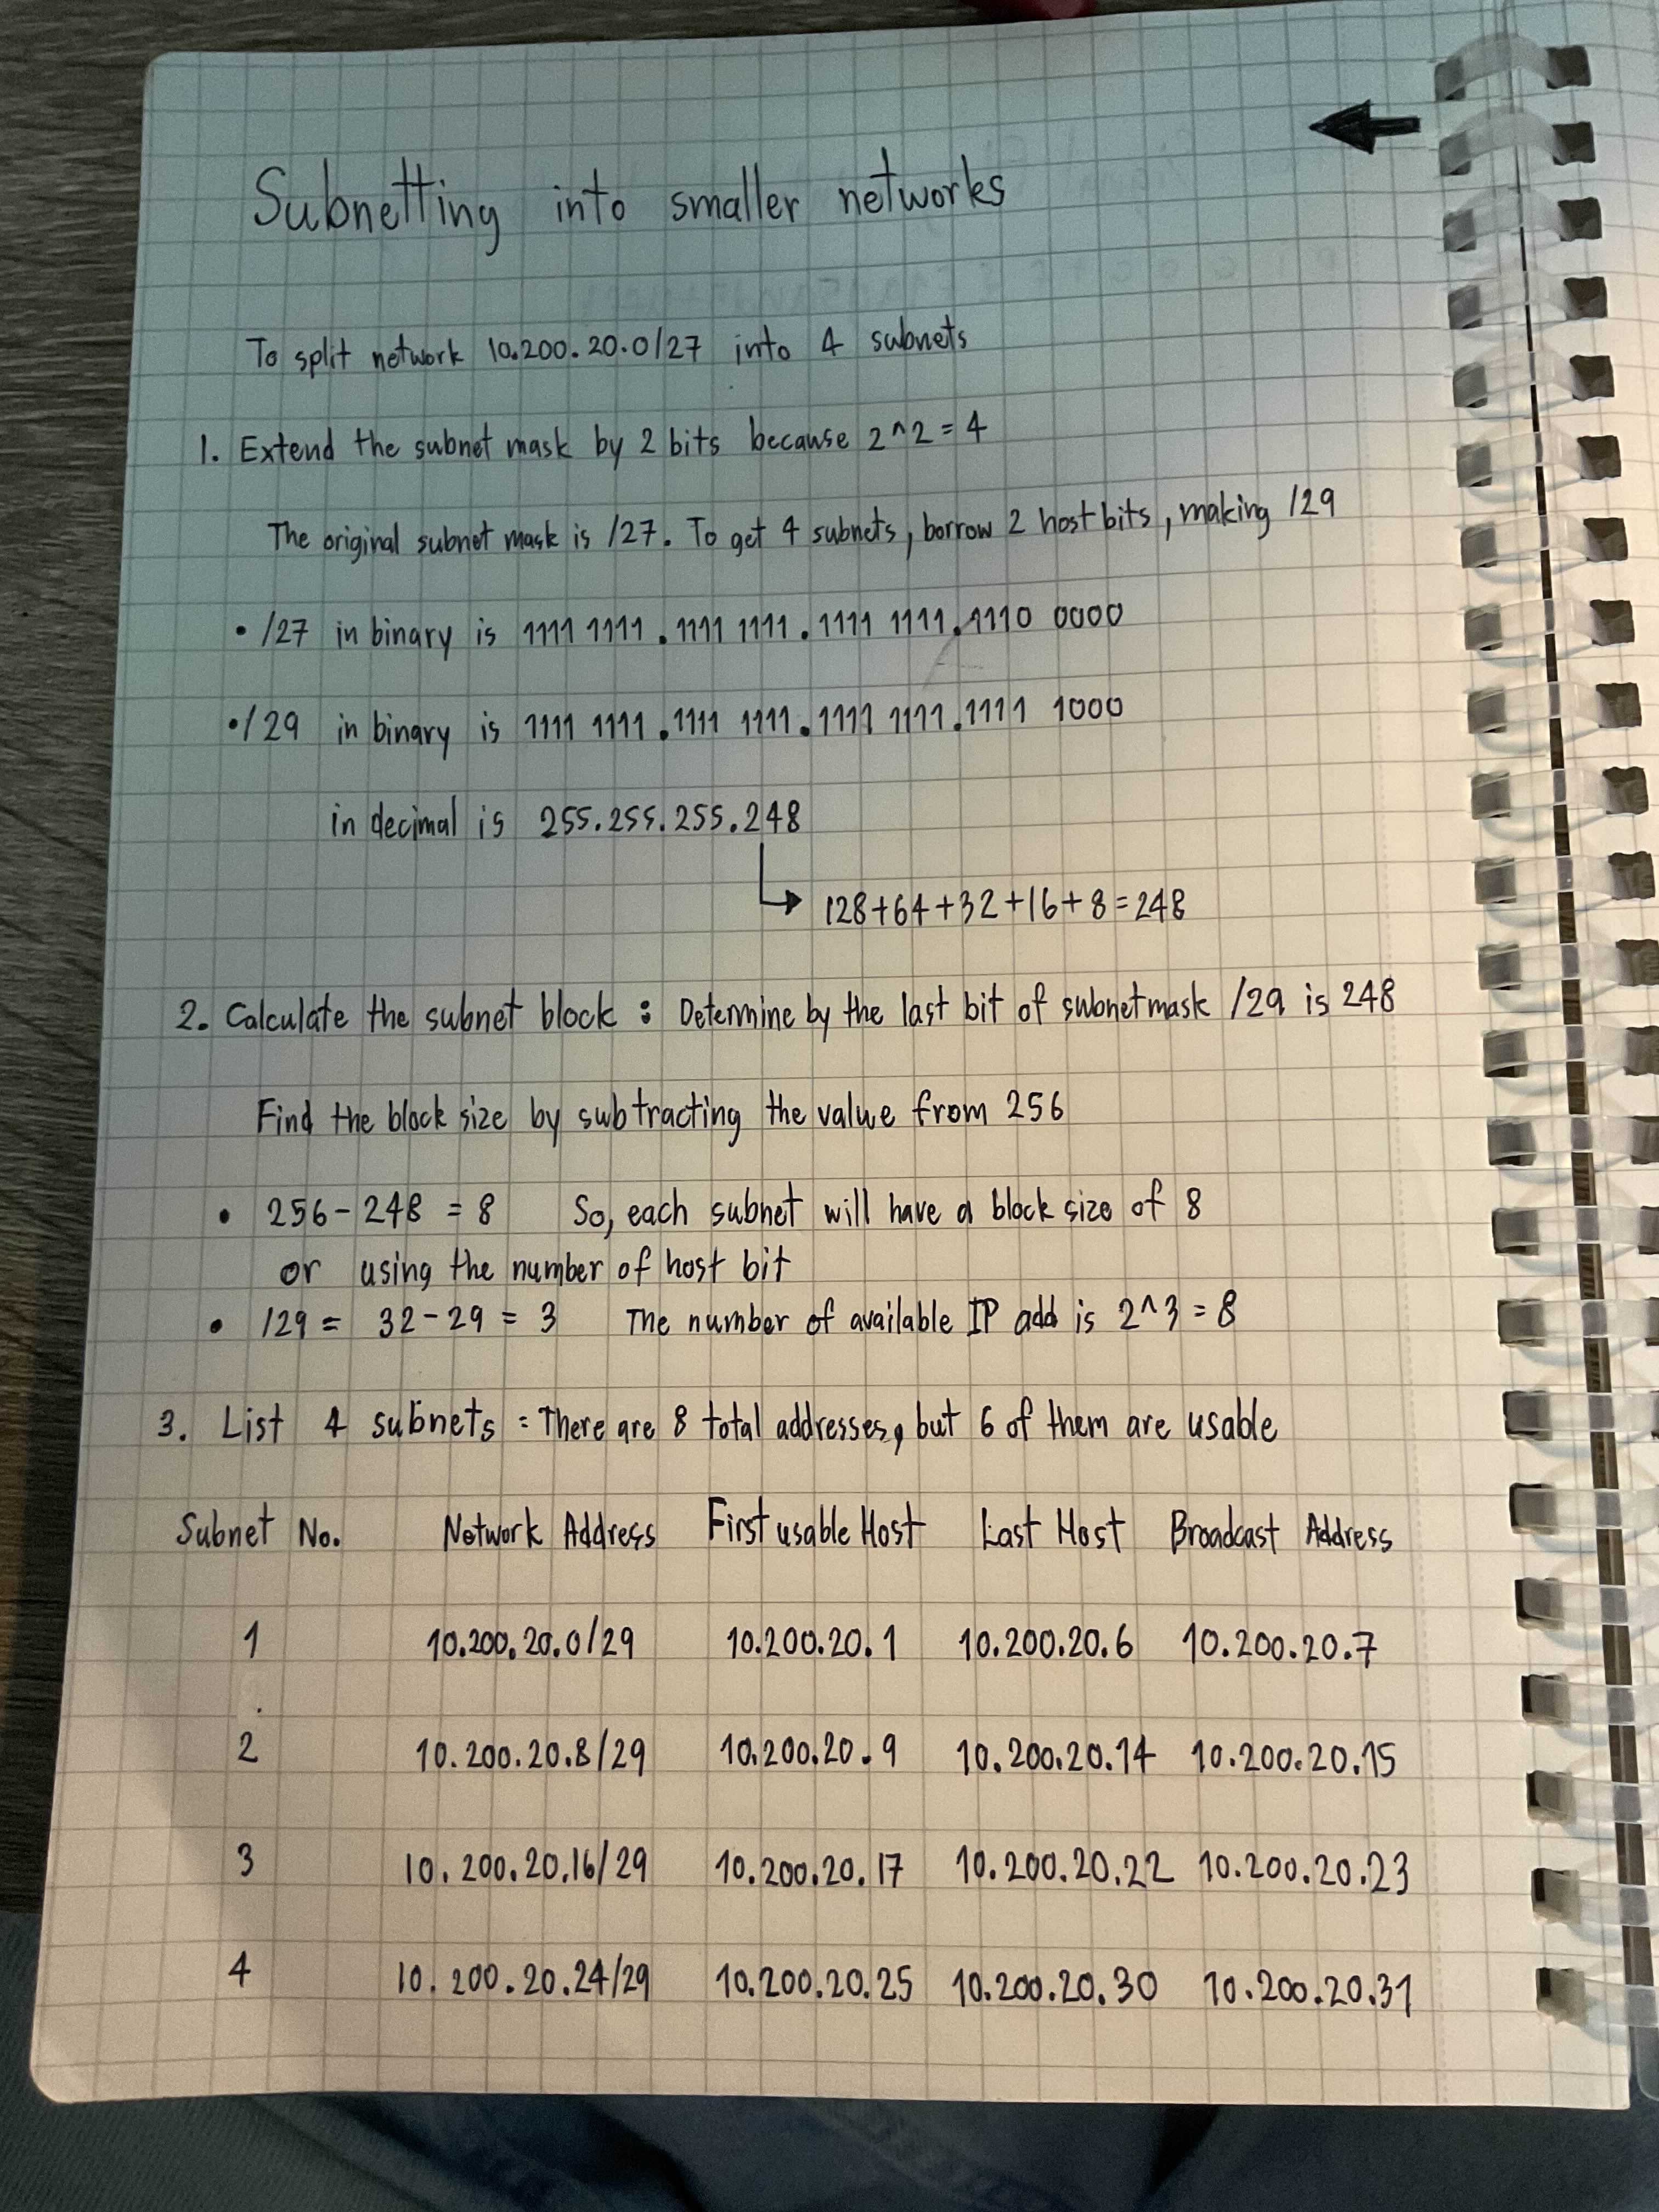 Subnetting into smaller networks
To split network 10.200.20.0/27 into 4 subnets
1. Extend the subnet mask by 2 bits because 2^2 = 4
The original subnet mask is /27. To get 4 subnets, borrow 2 host bits, making /29
• /27 in binary is 1111 1111.1111 1111.1111 1111.1110 0000
• /29 in binary is 1111 1111.1111 1111.1111 1111.1111 1000
in decimal is 255.255.255.248
128+64+32+16+8=248
2. Calculate the subnet block : Determine by the last bit of subnetmask /29 is 248
Find the block size by subtracting the value from 256
• 256-248 = 8 So, each subnet will have a block size of 8
or using the number of host bit
• /29 = 32-29 = 3 The number of available IP add is 2^3 = 8
3. List 4 subnets = There are 8 total addresses, but 6 of them are usable
Subnet No. Network Address First usable Host Last Host Broadcast Address
1 10.200.20.0/29 10.200.20.1 10.200.20.6 10.200.20.7
2 10.200.20.8/29 10.200.20.9 10.200.20.14 10.200.20.15
3 10.200.20.16/29 10.200.20.17 10.200.20.22 10.200.20.23
4 10.200.20.24/29 10.200.20.25 10.200.20.30 10.200.20.31